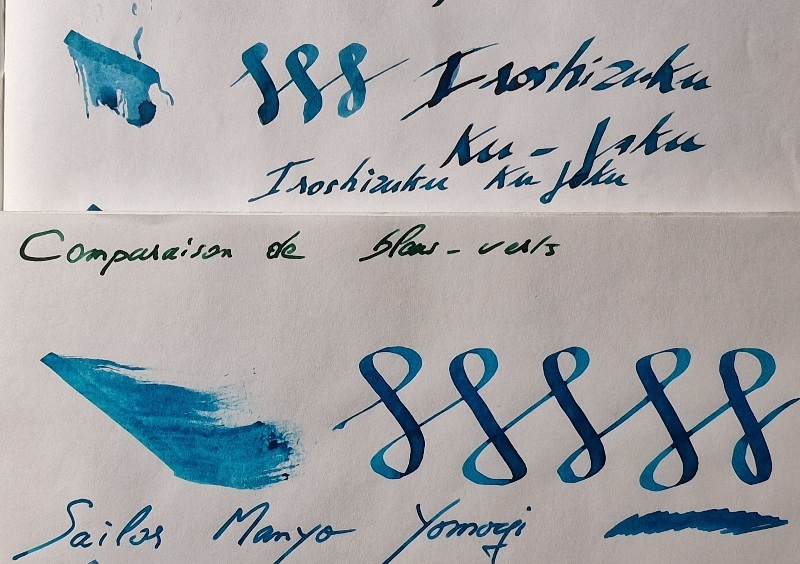 Iroshizuku
Ku-Jaku
Iroshizuku Ku Jaku
Comparaison de bleus-verts
Sailor Manyo Yomogi